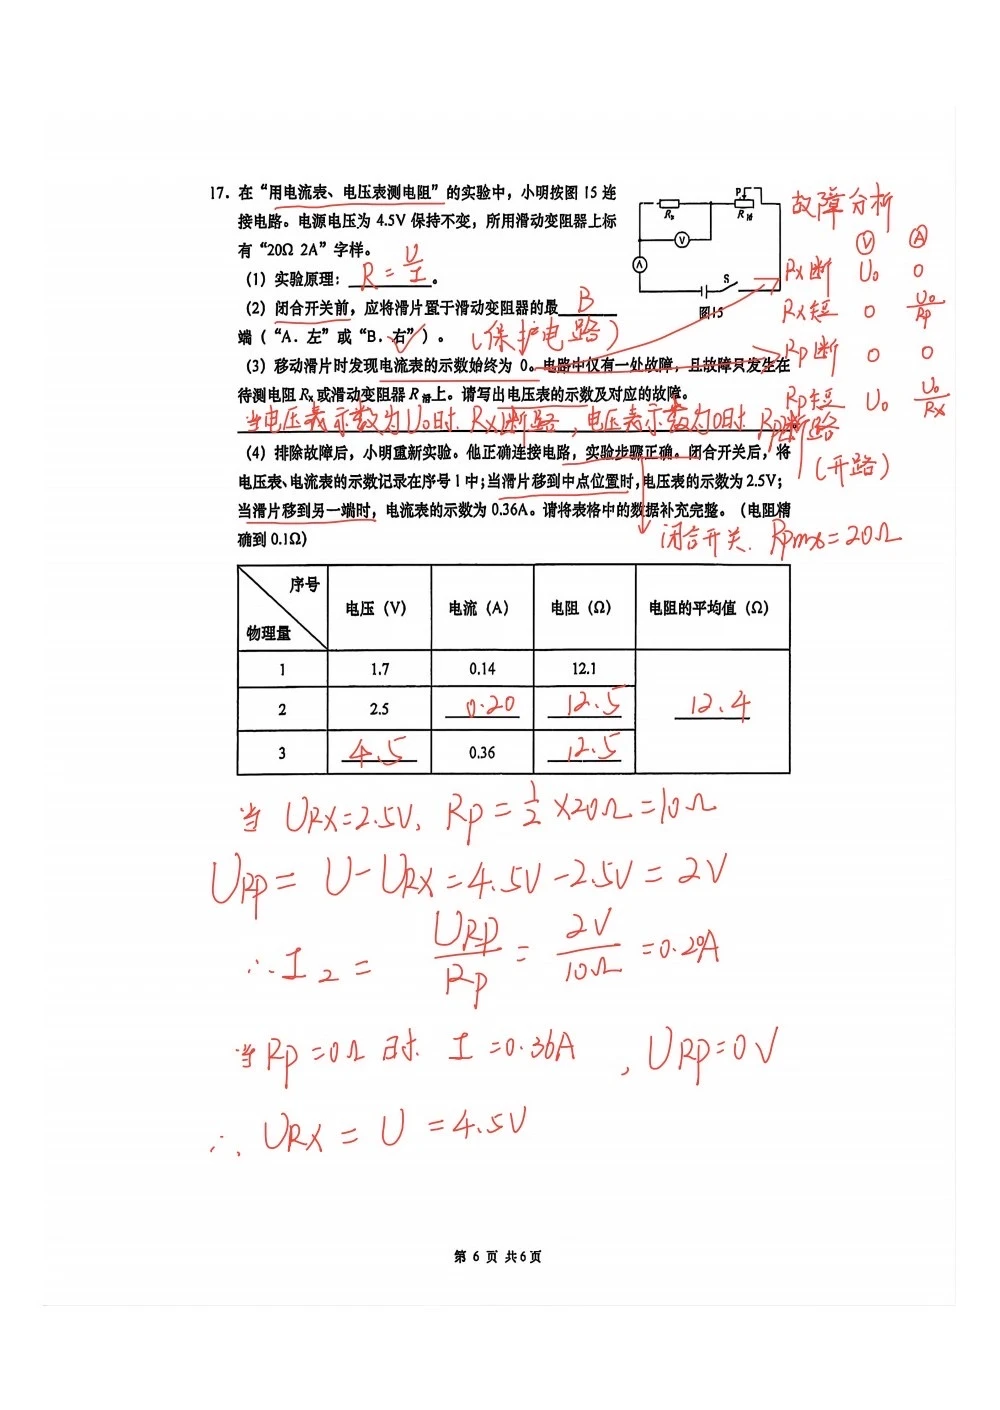 17. 在“用电流表、电压表测电阻”的实验中，小明按图 15 连
接电路。电源电压为 4.5V 保持不变，所用滑动变阻器上标
有“20Ω 2A”字样。
(1) 实验原理：R = U/I。
(2) 闭合开关前，应将滑片置于滑动变阻器的最 B
端（“A．左”或“B．右”）。 (保护电路)
(3) 移动滑片时发现电流表的示数始终为 0。电路中仅有一处故障，且故障只发生在
待测电阻 Rx 或滑动变阻器 R滑上。请写出电压表的示数及对应的故障。
当电压表示数为U₀时，Rx断路，电压表示数为0时，Rp断路
(开路)
(4) 排除故障后，小明重新实验。他正确连接电路，实验步骤正确。闭合开关后，将
电压表、电流表的示数记录在序号 1 中；当滑片移到中点位置时，电压表的示数为 2.5V；
当滑片移到另一端时，电流表的示数为 0.36A。请将表格中的数据补充完整。（电阻精
确到 0.1Ω）
闭合开关. Rpmax=20Ω
P
Rx R滑
V
A
S
图15
故障分析
V A
Rx断 U₀ 0
Rx短 0 U₀/Rp
Rp断 0 0
Rp短 U₀ U₀/Rx
序号 物理量 电压（V） 电流（A） 电阻（Ω） 电阻的平均值（Ω）
1 1.7 0.14 12.1
2 2.5 0.20 12.5 12.4
3 4.5 0.36 12.5
当 URX=2.5V, Rp = 1/2 ×20Ω=10Ω
URP = U-URX=4.5V-2.5V=2V
∴I₂ = URP/Rp = 2V/10Ω =0.20A
当 Rp=0Ω 时. I=0.36A , URP=0V
∴ URX = U =4.5V
第 6 页 共6页